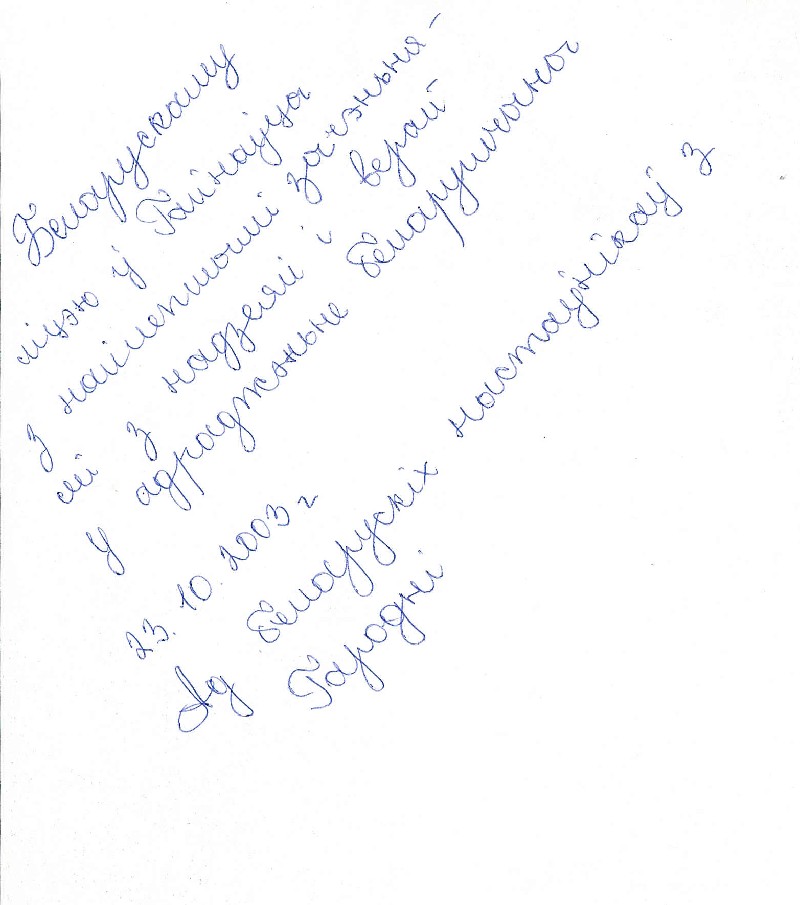 Беларускаму
ліцэю ў Гайнаўцы
з найлепшымі зычэньня-
мі з надзеяй і верай
у адраджэньне беларушчыны
23.10.2003 г
Ад беларускіх настаўнікаў з
Гародні